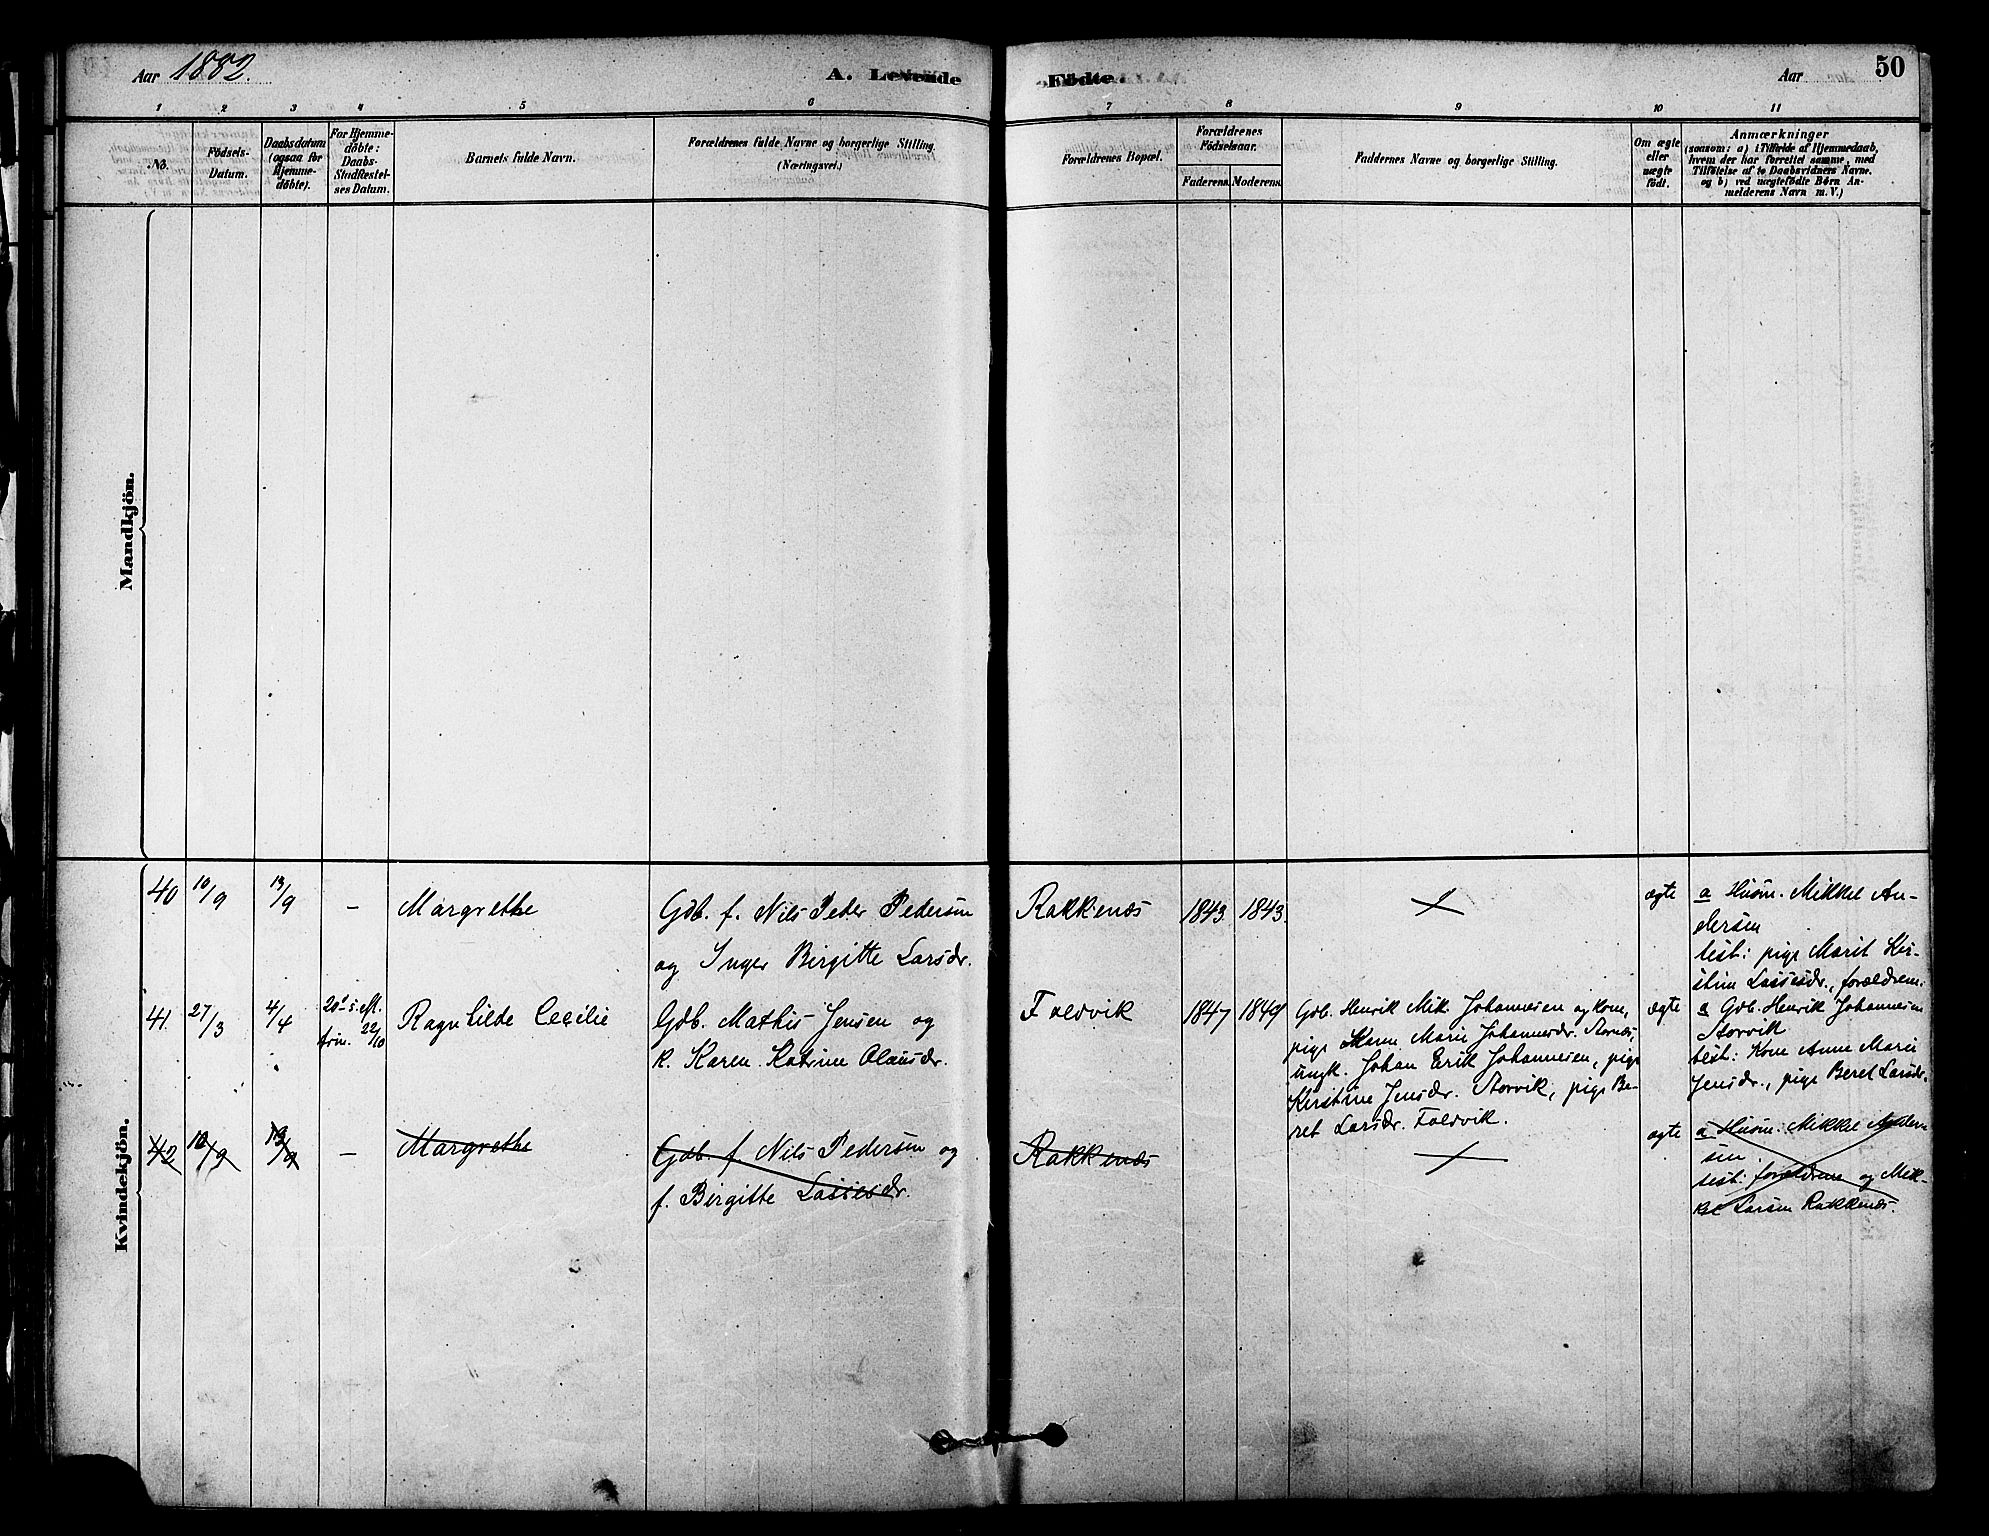 Aar 1882.
A. Levende
Födte.
Aar
50
1 2 3 4 5 6 7 8 9 10 11
No.
Födsels-
Datum.
Daabsdatum
(ogsaa for
Hjemme-
döbte).
For Hjemme-
döbte:
Daabs-
Stadfæstel-
ses Datum.
Barnets fulde Navn.
Forældrenes fulde Navne og borgerlige Stilling.
(Næringsvei.)
Forældrenes Bopæl.
Forældrenes
Födselsaar.
Faderens. Moderens.
Faddernes Navne og borgerlige Stilling.
Om ægte
eller
uægte
födt.
Anmærkninger
(saasom: a) i Tilfælde af Hjemmedaab,
hvem der har forrettet samme, med
Tilföielse af to Daabsvidners Navne.
og b) ved uægtefödte Börn An-
melderens Navn m. V.)
Mandkjön.
Kvindekjön.
40
10/9
13/9
-
Margrethe
Gdb. f. Nils Peder Pedersen
og Inger Birgitte Larsdr.
Rakkenæs
1843.
1843.
ægte
a Husm. Mikkel An-
dersen
test: pige Marit Kir-
stine Lassesdr., forældrene.
41.
27/3
4/4
20d s. eft.
trin. 22/10
Ragnhilde Cecilie
Gdb. Mathis Jensen og
k. Karen Katrine Olausdr.
Foldvik
1847
1849
Gdb. Henrik Mik. Johannesen og kone,
pige Maren Marie Johannesdr. Stornes,
ungk. Johan Erik Johannesen, pige
Kirstine Jensdr. Storvik, pige Be-
ret Larsdr. Foldvik.
ægte
a Gdb. Henrik Johannesen
Storvik
test: Kone Anne Marie
Jensdr., pige Beret Larsdr.
42
10/9
13/9
-
Margrethe
Gdb. f. Nils Pedersen og
f. Birgitte Lassesdr.
Rakkenæs
ægte
a Husm: Mikkel Ander-
sen
test: forældrene og Mik-
kel Larsen Rakkenæs.